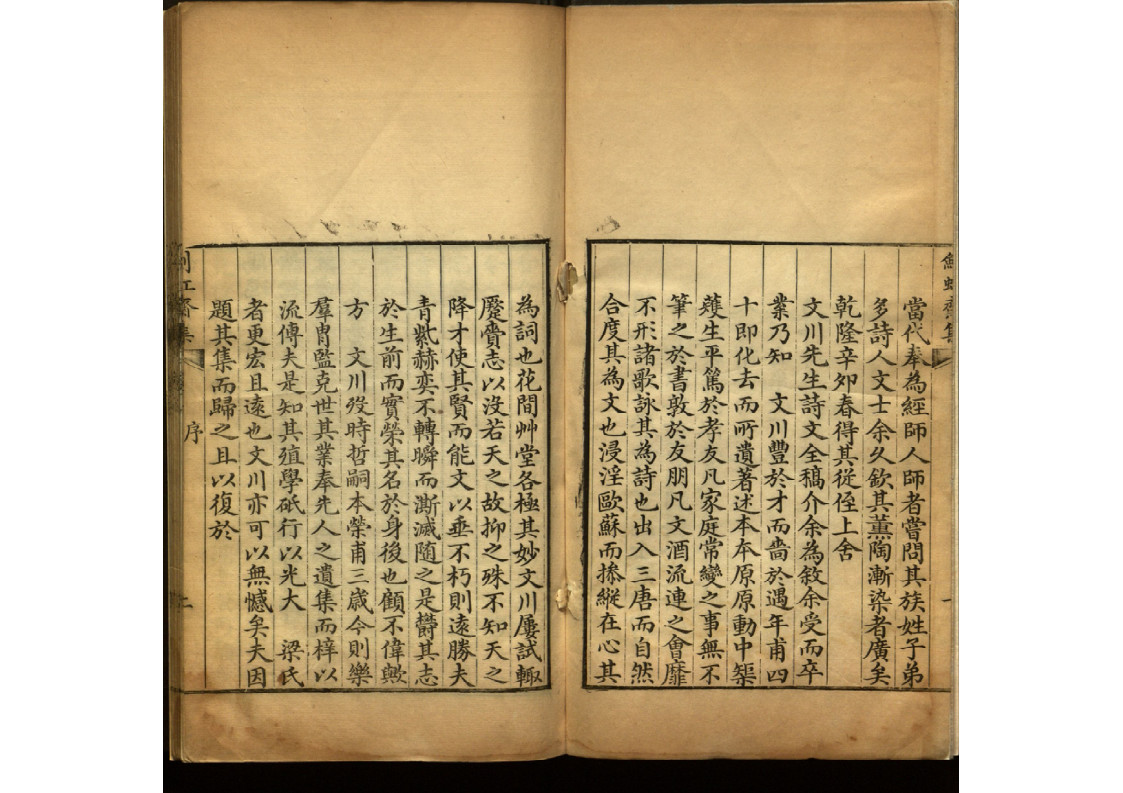 當代奉為經師人師者嘗問其族姓子弟
多詩人文士余久欽其薰陶漸染者廣矣
乾隆辛夘春得其從侄上舍
文川先生詩文全稿介余為敘余受而卒
業乃知 文川豐於才而嗇於遇年甫四
十即化去而所遺著述本本原原動中榘
矱生平篤於孝友凡家庭常變之事無不
筆之於書敦於友朋凡文酒流連之會靡
不形諸歌詠其為詩也出入三唐而自然
合度其為文也浸淫歐蘇而摻縱在心其
為詞也花間艸堂各極其妙文川屢試輙
蹷賫志以沒若天之故抑之殊不知天之
降才使其賢而能文以垂不朽則遠勝夫
青紫赫奕不轉瞬而澌滅隨之是欝其志
於生前而實榮其名於身後也顧不偉歟
方 文川歿時哲嗣本榮甫三歲今則樂
羣胄監克世其業奉先人之遺集而梓以
流傳夫是知其殖學砥行以光大 梁氏
者更宏且遠也文川亦可以無憾矣夫因
題其集而歸之且以復於
齋集
序
二